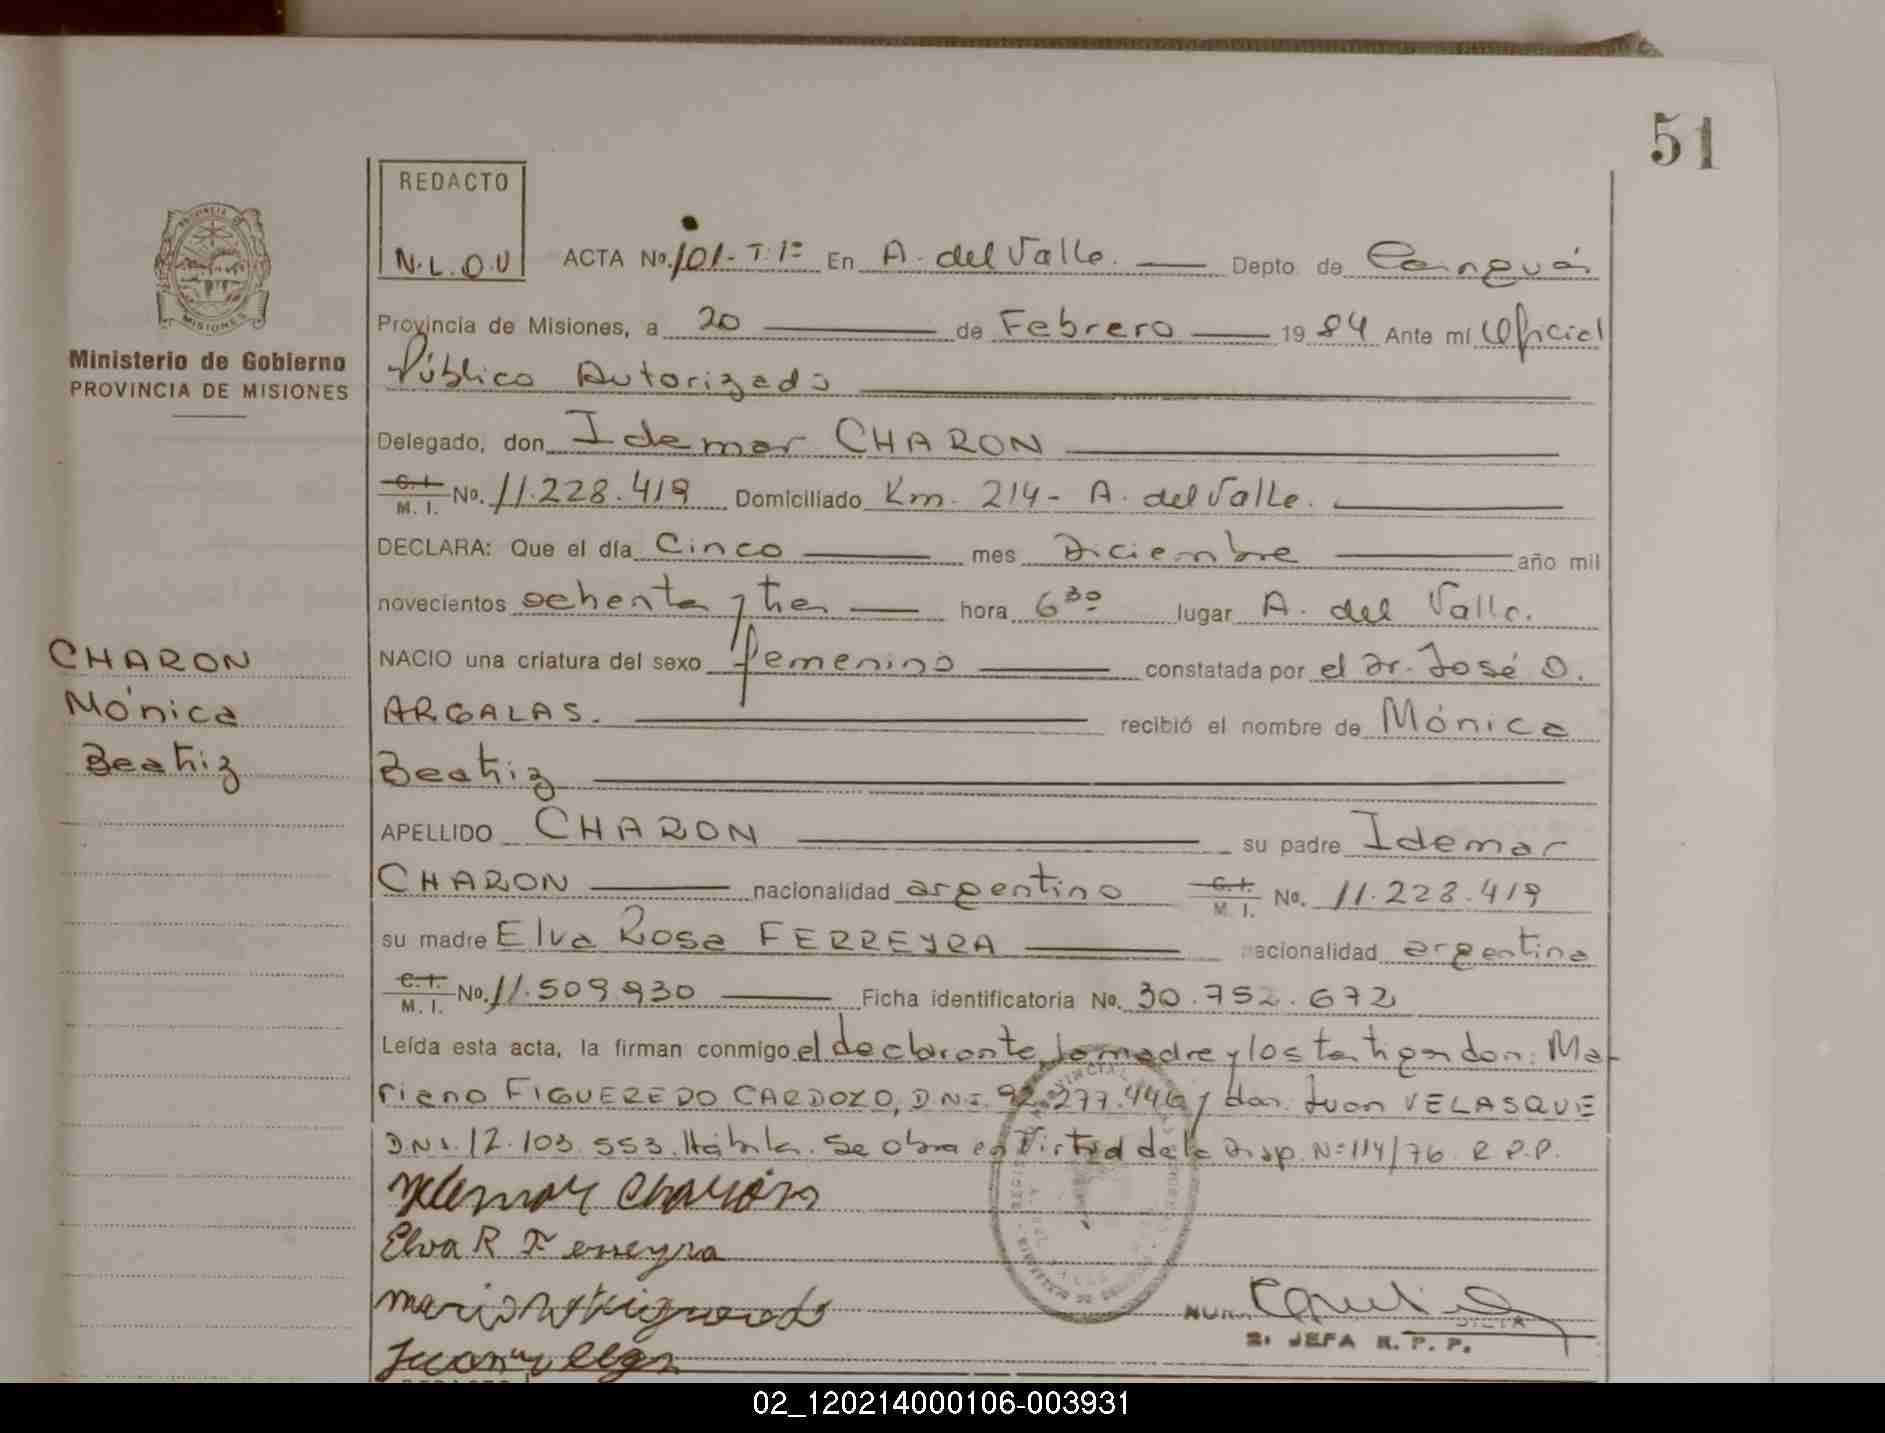 51
REDACTO
N.L.O.U
ACTA No. 101-T.1º En A. del Valle. Depto. de Cainguás
Provincia de Misiones, a 20 de Febrero 1984 Ante mí Oficial
Público Autorizado
Delegado, don Idemar CHARON
C.I. M.I. No. 11.228.419 Domiciliado Km. 214- A. del Valle.
DECLARA: Que el día Cinco mes Diciembre año mil
novecientos ochenta y tres hora 6 30 lugar A. del Valle.
NACIO una criatura del sexo femenino constatada por el Dr. José O.
ARGALAS. recibió el nombre de Mónica
Beatriz
APELLIDO CHARON su padre Idemar
CHARON nacionalidad argentino C.I. M.I. No. 11.228.419
su madre Elva Rosa FERREYRA nacionalidad argentina
C.I. M.I. No. 11.509.930 Ficha identificatoria No. 30.752.672
Leída esta acta, la firman conmigo el declarante, la madre y los testigos don: Ma-
riano FIGUEREDO CARDOZO, D.N.I. 92.277.446 y don Juan VELASQUE
D.N.I. 12.103.553. Hábiles. Se obra en Virtud de la Disp. Nº 114/76 R.P.P.
Idemar Charon
Elva R Ferreyra
2. JEFA R. P. P.
PROVINCIA DE MISIONES
Ministerio de Gobierno
PROVINCIA DE MISIONES
CHARON
Mónica
Beatriz
02_120214000106-003931